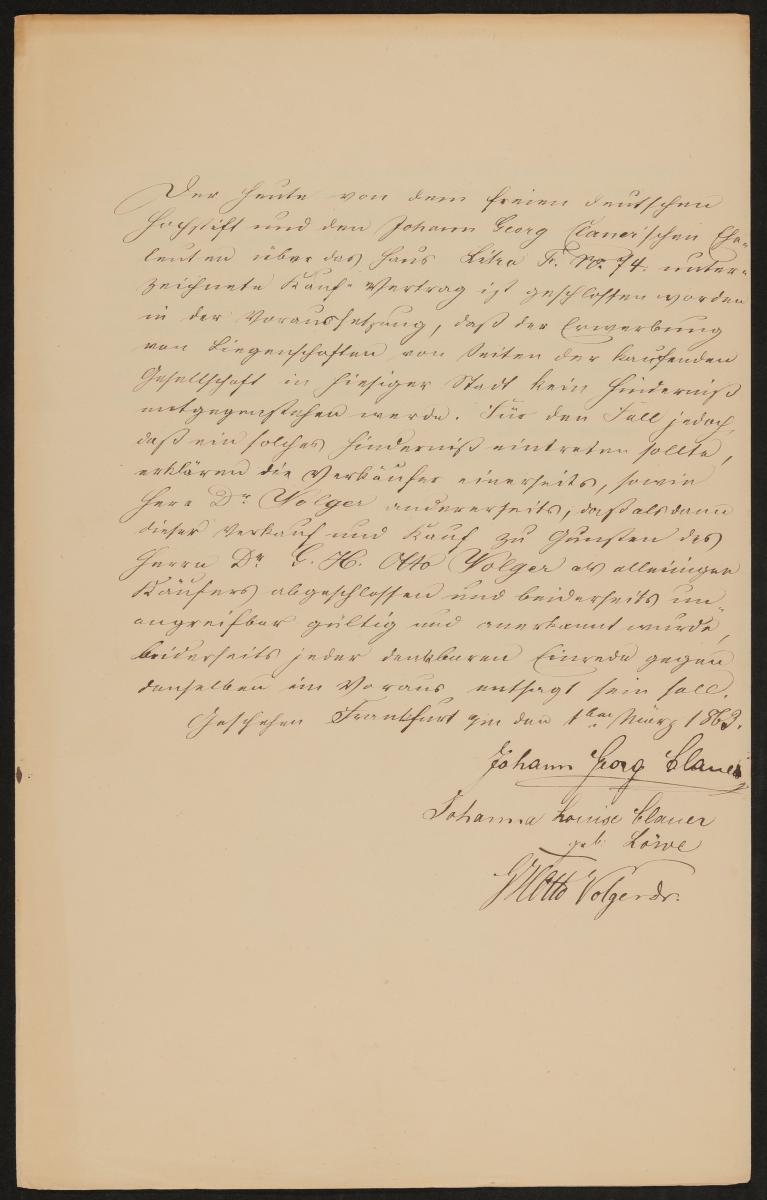 Der heute von dem freien deutschen
Hochstift und den Johann Georg Clauer'schen Ehe-
leuten über das Haus Litra F. No. 74. unter-
zeichnete Kauf-Vertrag ist geschlossen worden
in der Voraussetzung, daß der Erwerbung
von Liegenschaften von Seiten der kaufenden
Gesellschaft in hiesiger Stadt kein Hinderniß
entgegenstehen werde. Für den Fall jedoch,
daß ein solches Hinderniß eintreten sollte,
erklären die Verkäufer einerseits, sowie
Herr Dr. Volger andererseits, daß alsdann
dieser Verkauf und Kauf zu Gunsten des
Herrn Dr. G. H. Otto Volger als alleinigen
Käufers abgeschlossen und beiderseits un-
angreifbar gültig und anerkannt wurde,
beiderseits jeder denkbaren Einrede gegen
denselben im Voraus entsagt sein soll.
Geschehen Frankfurt a/m den 1ten März 1863.
Johann Georg Clauer
Johanna Louise Clauer
geb. Löwe
GHOtto Volger Dr.